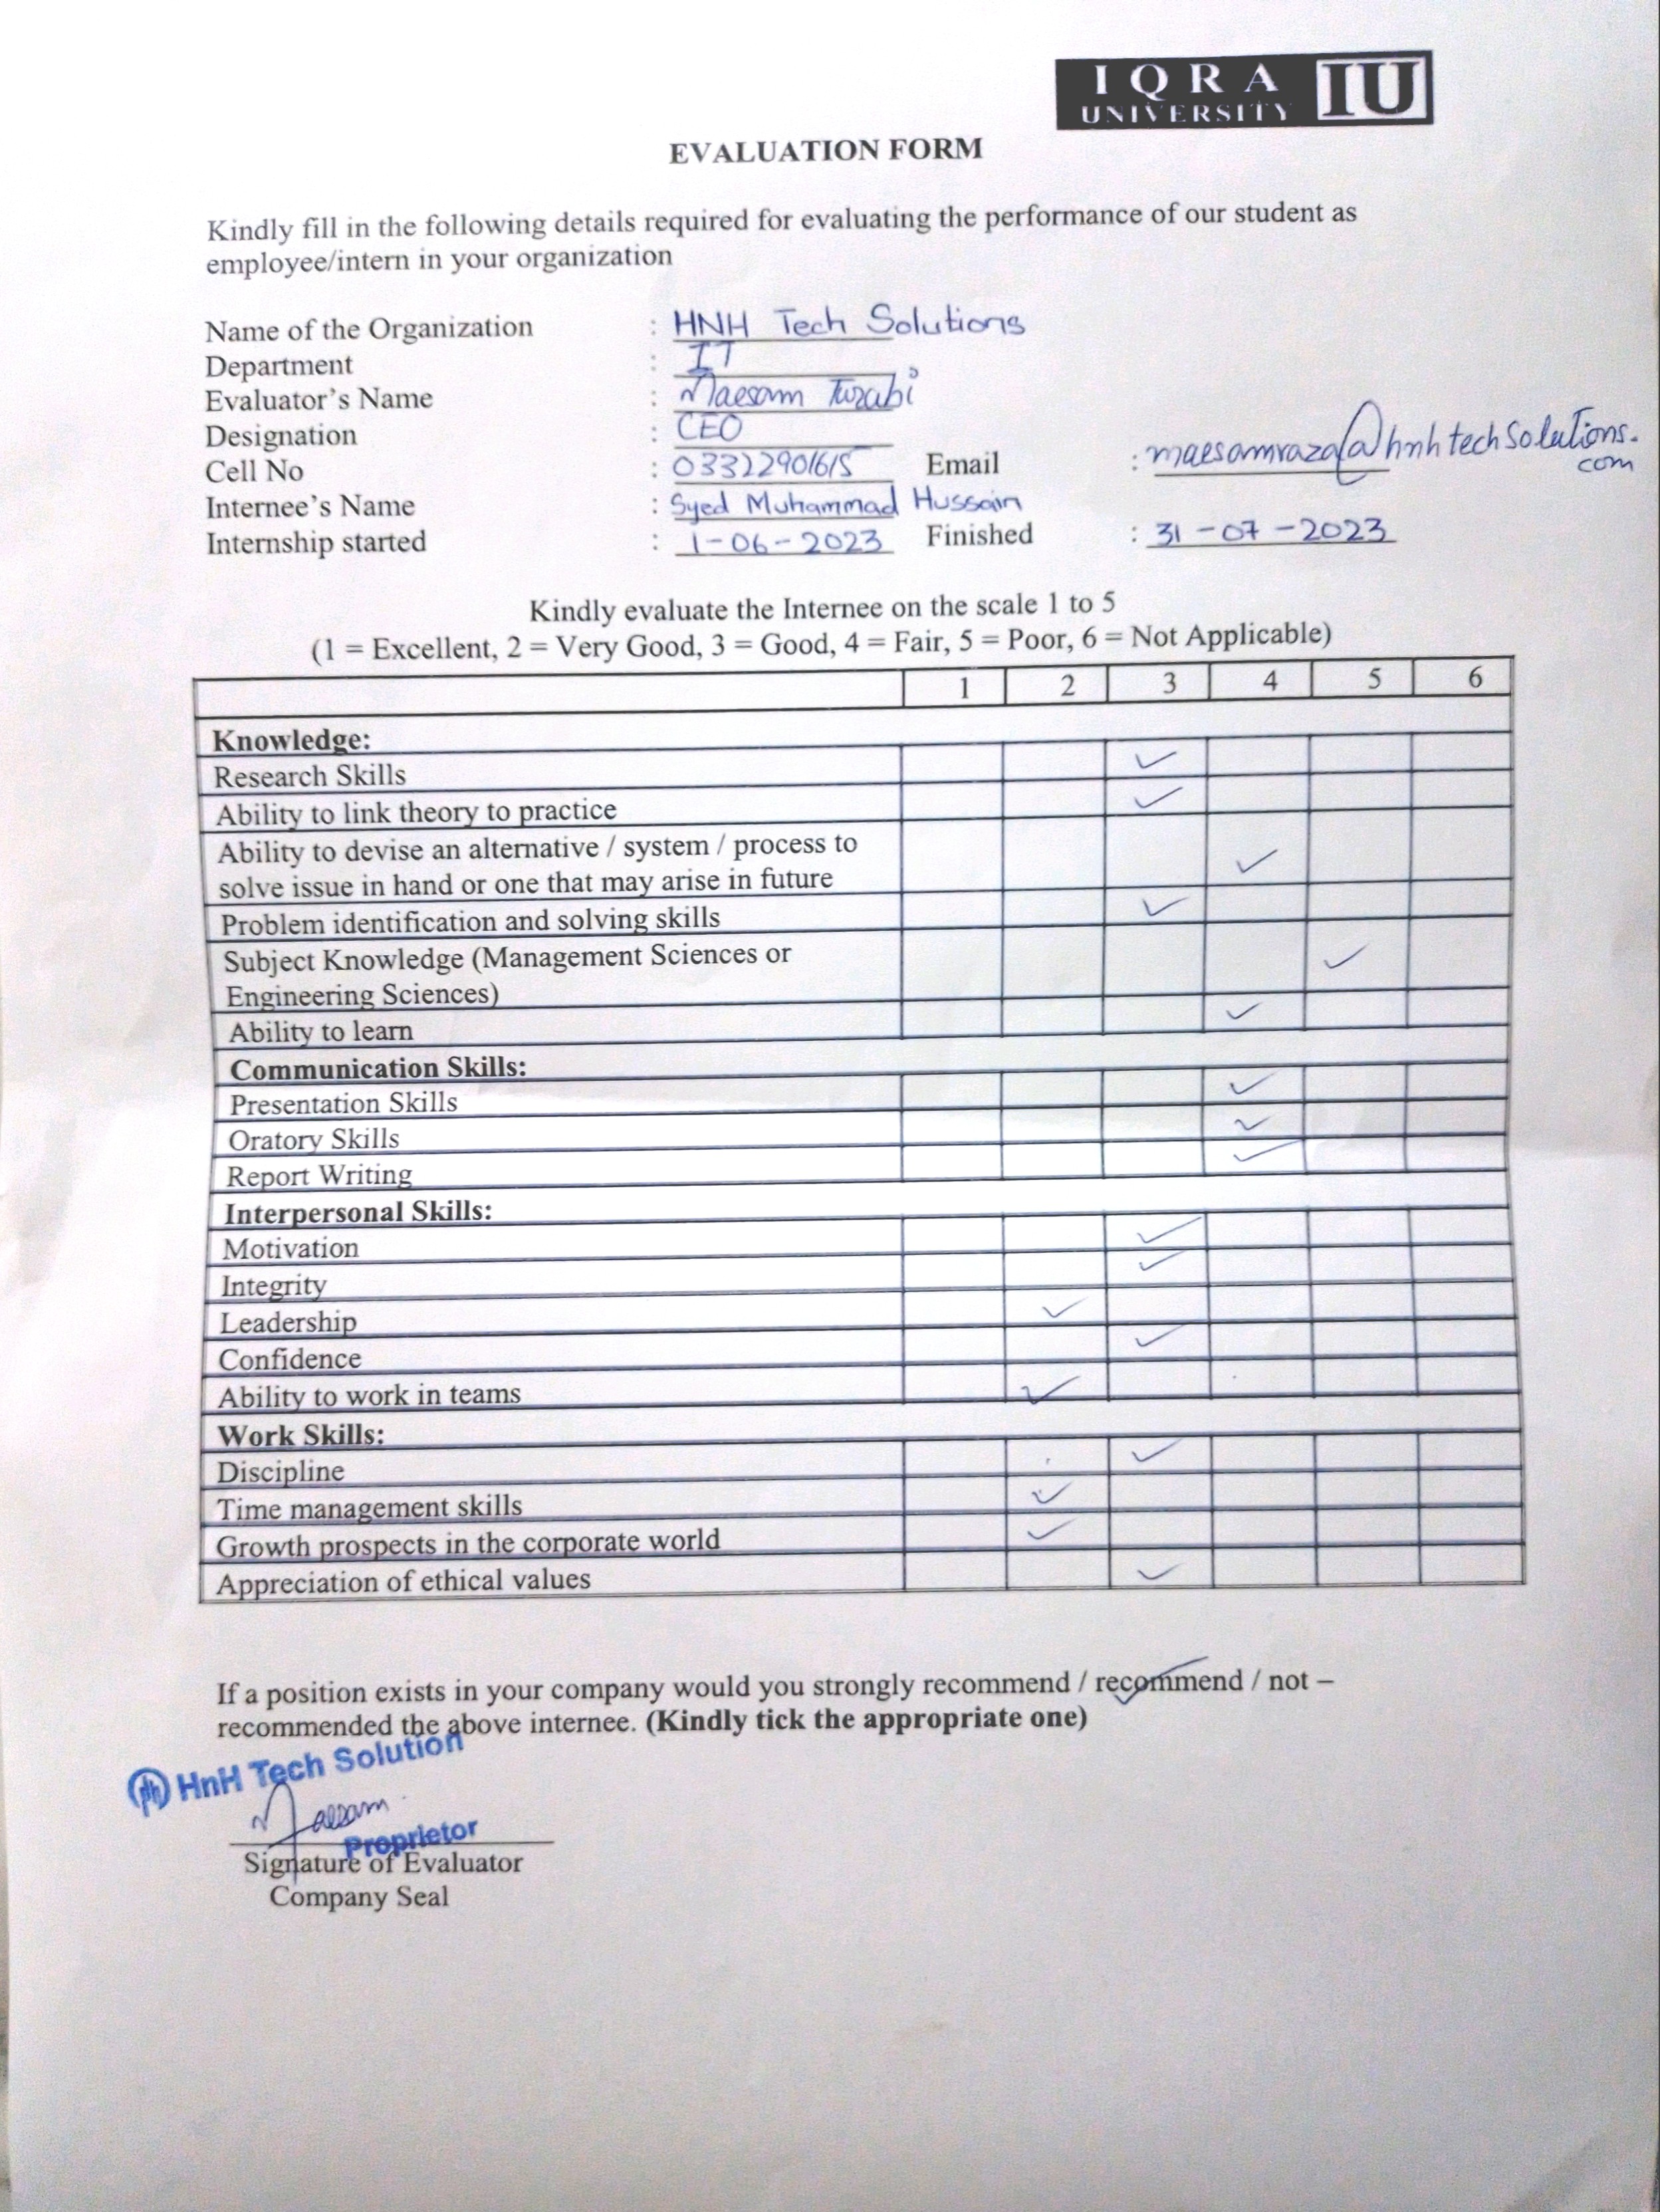 IQRA
UNIVERSITY IU
EVALUATION FORM
Kindly fill in the following details required for evaluating the performance of our student as
employee/intern in your organization
Name of the Organization : HNH Tech Solutions
Department : IT
Evaluator's Name : Maesam Turabi
Designation : CEO
Cell No : 03322901615 Email : maesamraza@hnhtechsolutions.
com
Internee's Name : Syed Muhammad Hussain
Internship started : 1-06-2023 Finished : 31-07-2023
Kindly evaluate the Internee on the scale 1 to 5
(1 = Excellent, 2 = Very Good, 3 = Good, 4 = Fair, 5 = Poor, 6 = Not Applicable)
1 2 3 4 5 6
Knowledge:
Research Skills ✓
Ability to link theory to practice ✓
Ability to devise an alternative / system / process to
solve issue in hand or one that may arise in future ✓
Problem identification and solving skills ✓
Subject Knowledge (Management Sciences or
Engineering Sciences) ✓
Ability to learn ✓
Communication Skills:
Presentation Skills ✓
Oratory Skills ✓
Report Writing ✓
Interpersonal Skills:
Motivation ✓
Integrity ✓
Leadership ✓
Confidence ✓
Ability to work in teams ✓
Work Skills:
Discipline ✓
Time management skills ✓
Growth prospects in the corporate world ✓
Appreciation of ethical values ✓
If a position exists in your company would you strongly recommend / recommend / not –
recommended the above internee. (Kindly tick the appropriate one)
HnH Tech Solution
Maesam
Proprietor
Signature of Evaluator
Company Seal